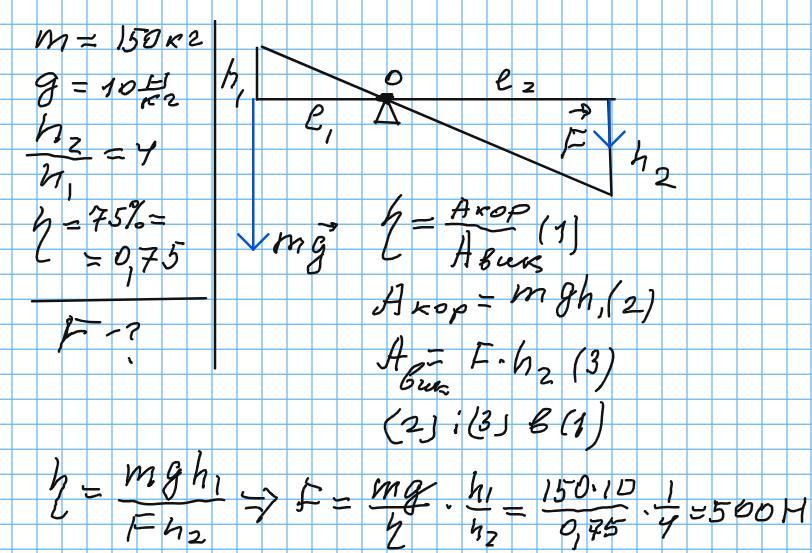 m = 150 кг
g = 10 Н/кг
h₂/h₁ = 4
η = 75% =
= 0,75
F - ?
h₁
O
l₁
l₂
F
h₂
mg
η = Aкор/Aвик (1)
Aкор = mgh₁ (2)
Aвик = F·h₂ (3)
(2) і (3) в (1)
η = mgh₁/Fh₂ ⇒ F = mg/η · h₁/h₂ = 150·10/0,75 · 1/4 = 500 Н